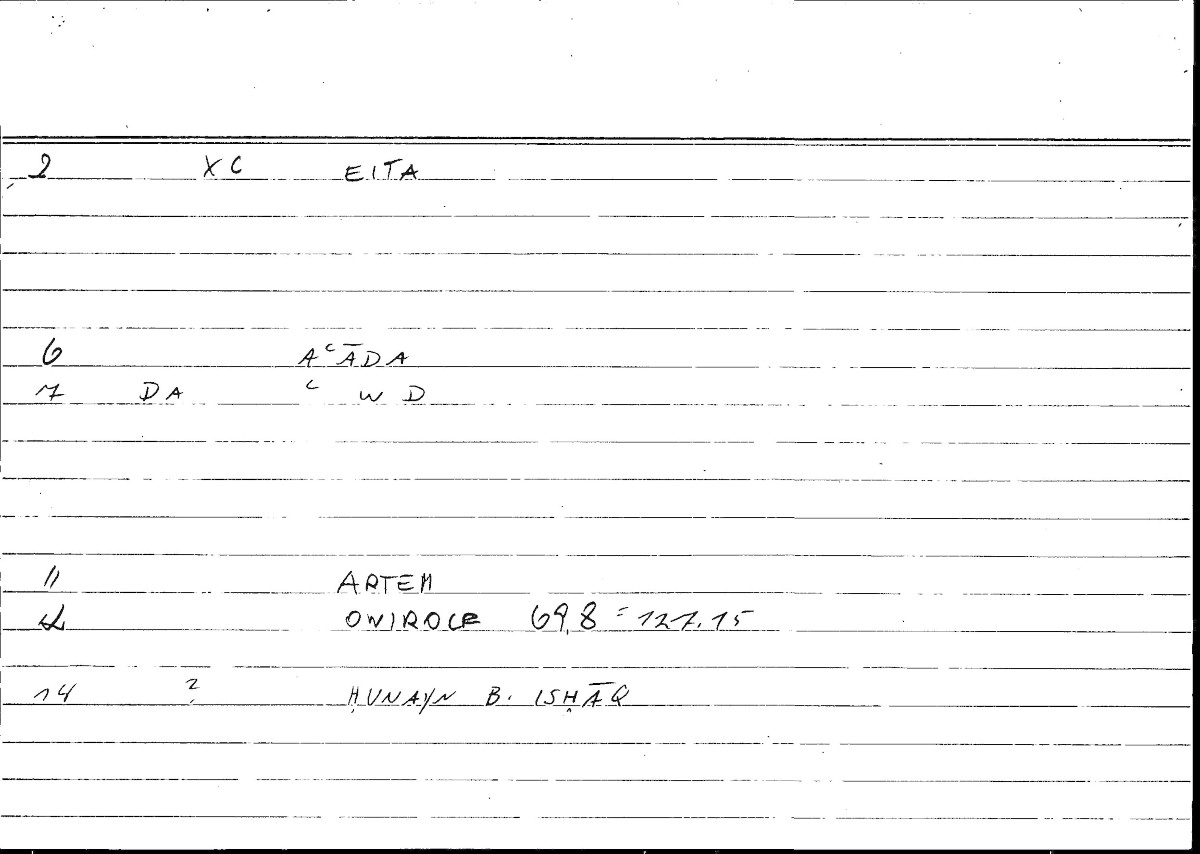 2 XC EITA
6 AᶜĀDA
7 DA ᶜ W D
11 ARTEM
12 ONIROCR 69,8 = 127.15
14 ? ḤUNAYN B. ISḤĀQ